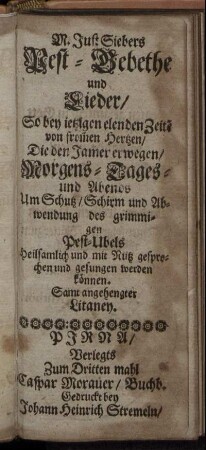 M. Just Siebers
Pest-Gebethe
und
Lieder/
So bey ietzigen elenden Zeitē
von from̃en Hertzen/
Die den Jam̃er erwegen/
Morgens-Tages-
und Abends
Um Schutz/Schirm und Ab-
wendung des grimmi-
gen
Pest-Ubels
Heilsamlich und mit Nutz gespro-
chen und gesungen werden
können.
Samt angehengter
Litaney.
PIRNA/
Verlegts
Zum Dritten mahl
Caspar Morauer/Buchb.
Gedruckt bey
Johann Heinrich Stremeln/